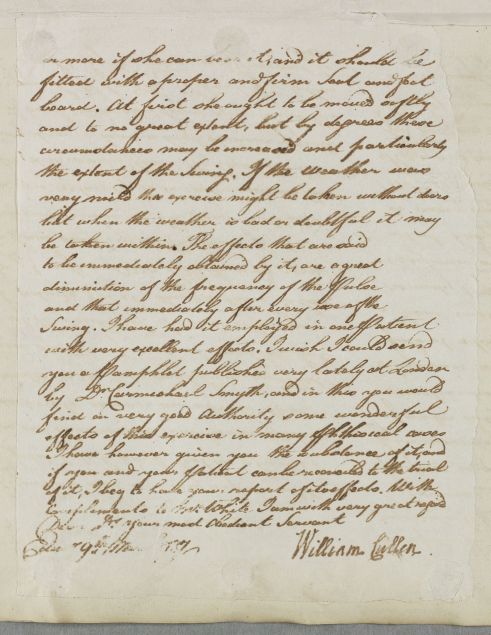 or more if she can bear it; and it should be
fitted with a proper and firm seat and foot
board. At first she ought to be moved softly
and to no great extent, but by degrees these
circumstances may be increased and particularly
the extent of the Swing. If the weather was
very mild this exercise might be taken without doors
but when the weather is bad or doubtful it may
be taken within. The effects that are said
to be immediately obtained by it, are a great
diminution of the frequency of the Pulse
and that immediately after every use of the
Swing. I have had it employed in one Patient
with very excellent effects. I wish I could send
you a Pamphlet published very lately at London
by Dr. Carmichael Smyth, and in this you would
find on very good Authority some wonderful
effects of this exercise in many Phthisical cases
I have however given you the substance of it, and
if you and your Patient can be reconciled to the trial
of it, I beg to have your report of its effects. With
Compliments to Mrs. White I am with very great regard
Dear Sr. Your most Obedient Servant
Edin 9th 1787
William Cullen.